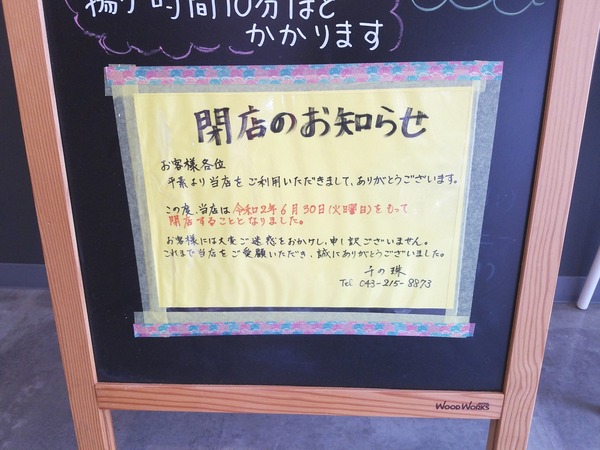 揚げ時間10分ほど
かかります
閉店のお知らせ
お客様各位
平素より当店をご利用いただきまして、ありがとうございます。
この度、当店は令和2年6月30日(火曜日)をもって
閉店することとなりました。
お客様には大変ご迷惑をおかけし、申し訳ございません。
これまで当店をご愛顧いただき、誠にありがとうございました。
千の珠
Tel 043-215-8873
WOODWORKS